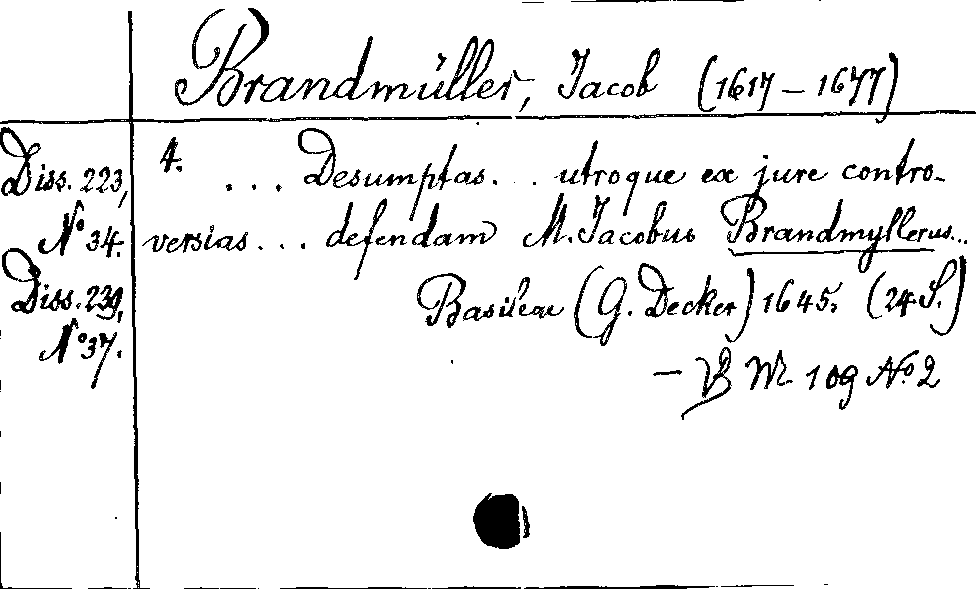 Brandmüller, Jacob (1617 – 1677)
Diss. 223,
No 34.
Diss. 239,
No 37.
4. ... Desumptas ... utroque ex jure contro-
versias ... defendam M. Jacobus Brandmyllerus...
Basileae (G. Decker) 1645. (24 S.)
– VB M 109 No. 2